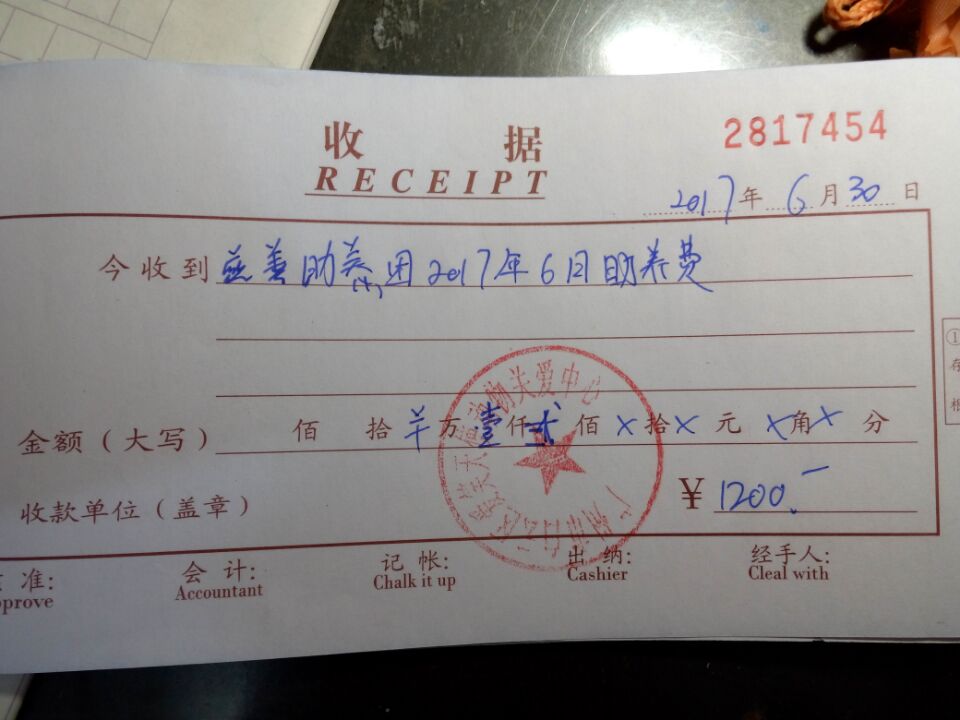 收 据
RECEIPT
2817454
2017年6月30日
今收到 慈善助养(大)团2017年6月助养费
金额（大写） 佰 拾 羊万 壹仟 贰佰 ×拾 × 元 ×角 × 分
收款单位（盖章） ¥ 1200.-
准: 会 计: 记 帐: 出 纳: 经手人:
Accountant Chalk it up Cashier Cleal with